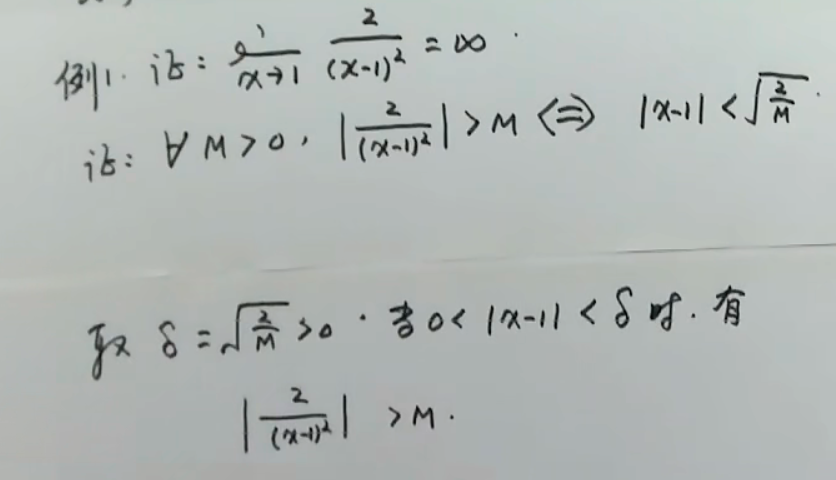 例1. 证: lim x→1 2/(x-1)² = ∞.
证: ∀ M > 0, |2/(x-1)²| > M ⇔ |x-1| < √(2/M).
取 δ = √(2/M) > 0. 当 0 < |x-1| < δ 时. 有
|2/(x-1)²| > M.